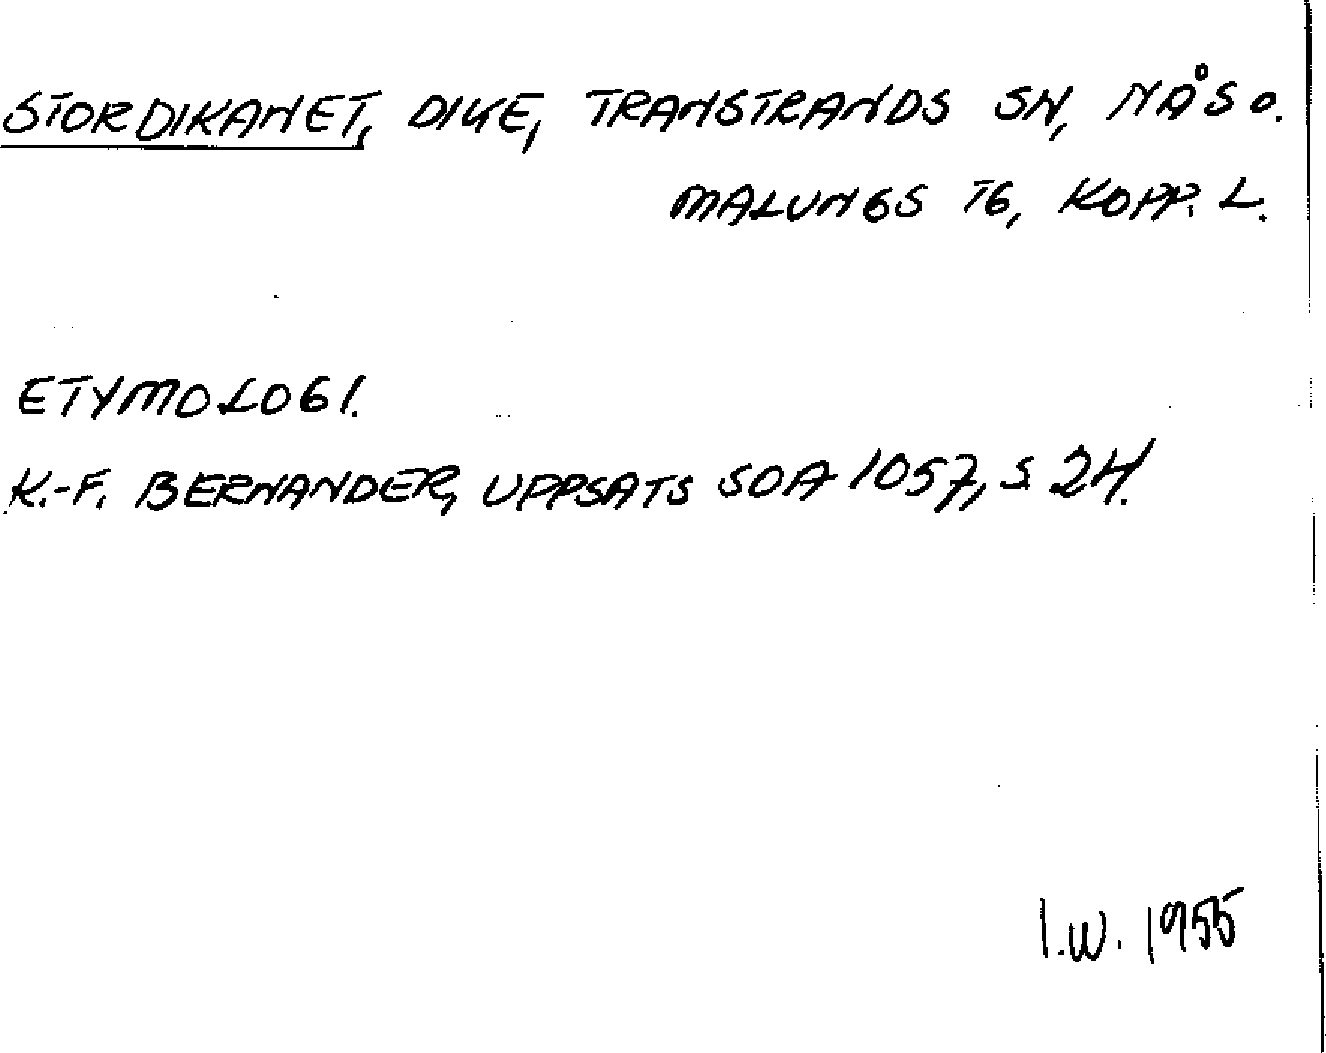 STORDIKANET, DIKE, TRANSTRANDS SN, NÅS O.
MALUNGS TG, KOPP. L.
ETYMOLOGI.
K.-F. BERNANDER, UPPSATS SOA 1057, S 24.
I.W. 1955